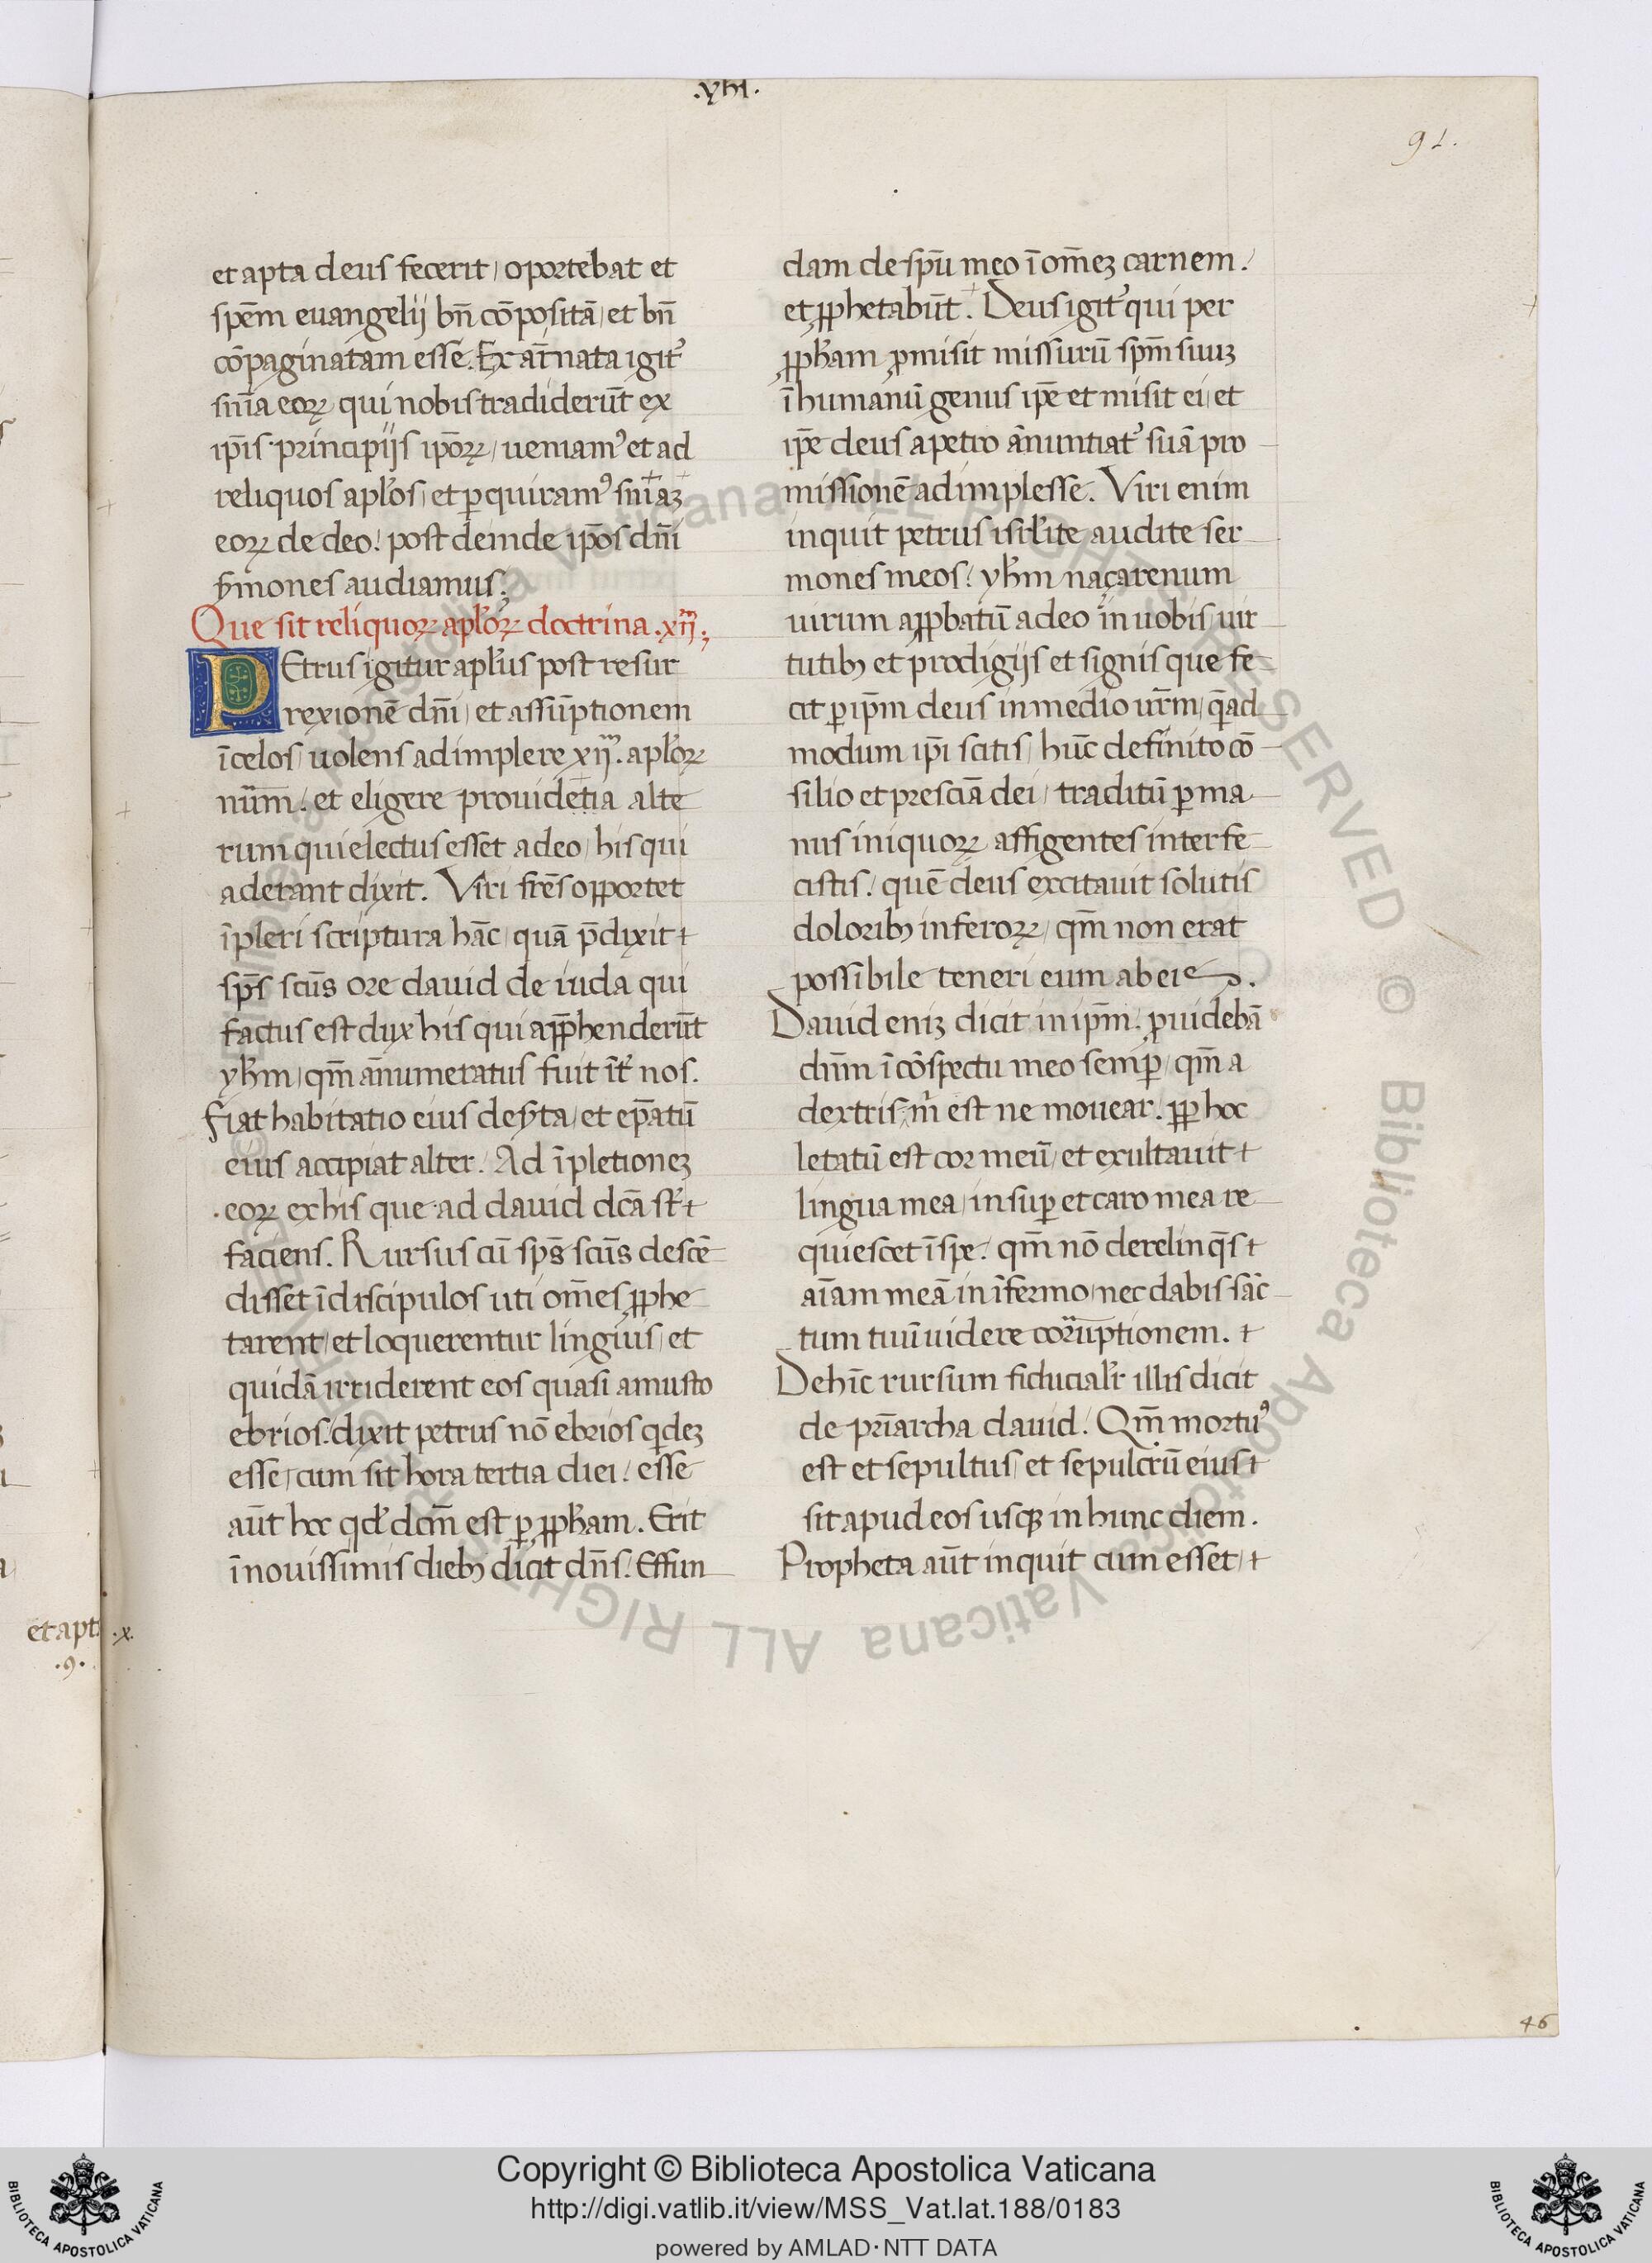 .xiii.
91.
et apta deus fecerit, oportebat et
spēm euangelij bn̄ cōpositā, et bn̄
cōpaginatam esse. Exat̄nata igit᷑
sn̄ia eoꝝ qui nobis tradiderūt ex
ip̄is principijs ip̄oꝝ, ueniamꝰ et ad
reliquos apl̓os, et ꝑquiramꝰ sn̄iaꝫ
eoꝝ de deo: post deinde ip̄os dn̄i
s̓mones audiamus;
Que sit reliquoꝝ apl̓oꝝ doctrina .xij.;
PEtrus igitur apl̓us post resur
rexionē dn̄i, et assūptionem
ī celos, uolens adimplere xij. apl̓oꝝ
nūm, et eligere prouidētia alte
rum qui electus esset a deo, his qui
aderant dixit. Viri frēs opportet
īpleri scriptura hāc, quā p̄dixit
sp̄s scūs ore dauid de iuda qui
factus est dux his qui app̄henderūt
yh̓m, qm̄ ānumeratus fuit īt̓ nos.
Fiat habitatio eius des̓ta, et ep̄atū
eius accipiat alter. Ad īpletioneꝫ
eoꝝ ex his que ad dauid dc̄a st̓
faciens. Rursus cū sp̄s scūs descē
disset ī discipulos uti om̄es ꝓphe
tarent, et loquerentur lingius, et
quidā irriderent eos quasi a musto
ebrios, dixit petrus nō ebrios qdeꝫ
esse, cum sit hora tertia diei: esse
aūt hoc qd̓ dcm̄ est ꝑ ꝓph̓am. Erit
ī nouissimis diebꝫ dicit dn̄s. Effun
dam de spū meo ī om̄eꝫ carnem:
et ꝓphetabūt. Deus igit᷑ qui per
ꝓph̓am ꝓmisit missurū spm̄ suuꝫ
ī humanū genus ip̄e et misit ei, et
ip̄e deus a petro ānuntiat᷑ suā pro
missionē adimplesse. Viri enim
inquit petrus isrl̓ite audite ser
mones meos: yh̓m naçarenum
uirum apꝓbatū a deo in uobis, uir
tutibꝫ et prodigijs et signis que fe
cit ꝑ ip̄m deus in medio ur̄m, q̄ad
modum ip̄i scitis, hūc definito cō
silio et presciā dei, traditū ꝑ ma
nus iniquoꝝ affigentes interfe
cistis: quē deus excitauit solutis
doloribꝫ inferoꝝ, qm̄ non erat
possibile teneri eum ab eis.
Dauid eniꝫ dicit in ip̄m. ꝓuidebā
dūm ī cōspectu meo semꝑ, qm̄ a
dextris m̓ est ne mouear. ꝓpꝑ hoc
letatū est cor meū, et exultauit
lingua mea, insuꝑ et caro mea re
quiescet ī spe: qm̄ nō derelinq̄s
aīam meā in īferno, nec dabis sāc
tum tuū uidere coruptionem.
Dehīc rursum fiducialr̓ illis dicit
de pr̄iarcha dauid. Qm̄ mortuꝰ
est et sepultus, et sepulcrū eius
sit apud eos usqꝫ in hunc diem.
Propheta aūt inquit cum esset,
et apt .x.
.9.
46
Copyright © Biblioteca Apostolica Vaticana
http://digi.vatlib.it/view/MSS_Vat.lat.188/0183
powered by AMLAD·NTT DATA
BIBLIOTECA APOSTOLICA VATICANA
BIBLIOTECA APOSTOLICA VATICANA
© Biblioteca Apostolica Vaticana ALL RIGHTS RESERVED © Biblioteca Apostolica Vaticana ALL RIGHTS RESERVED